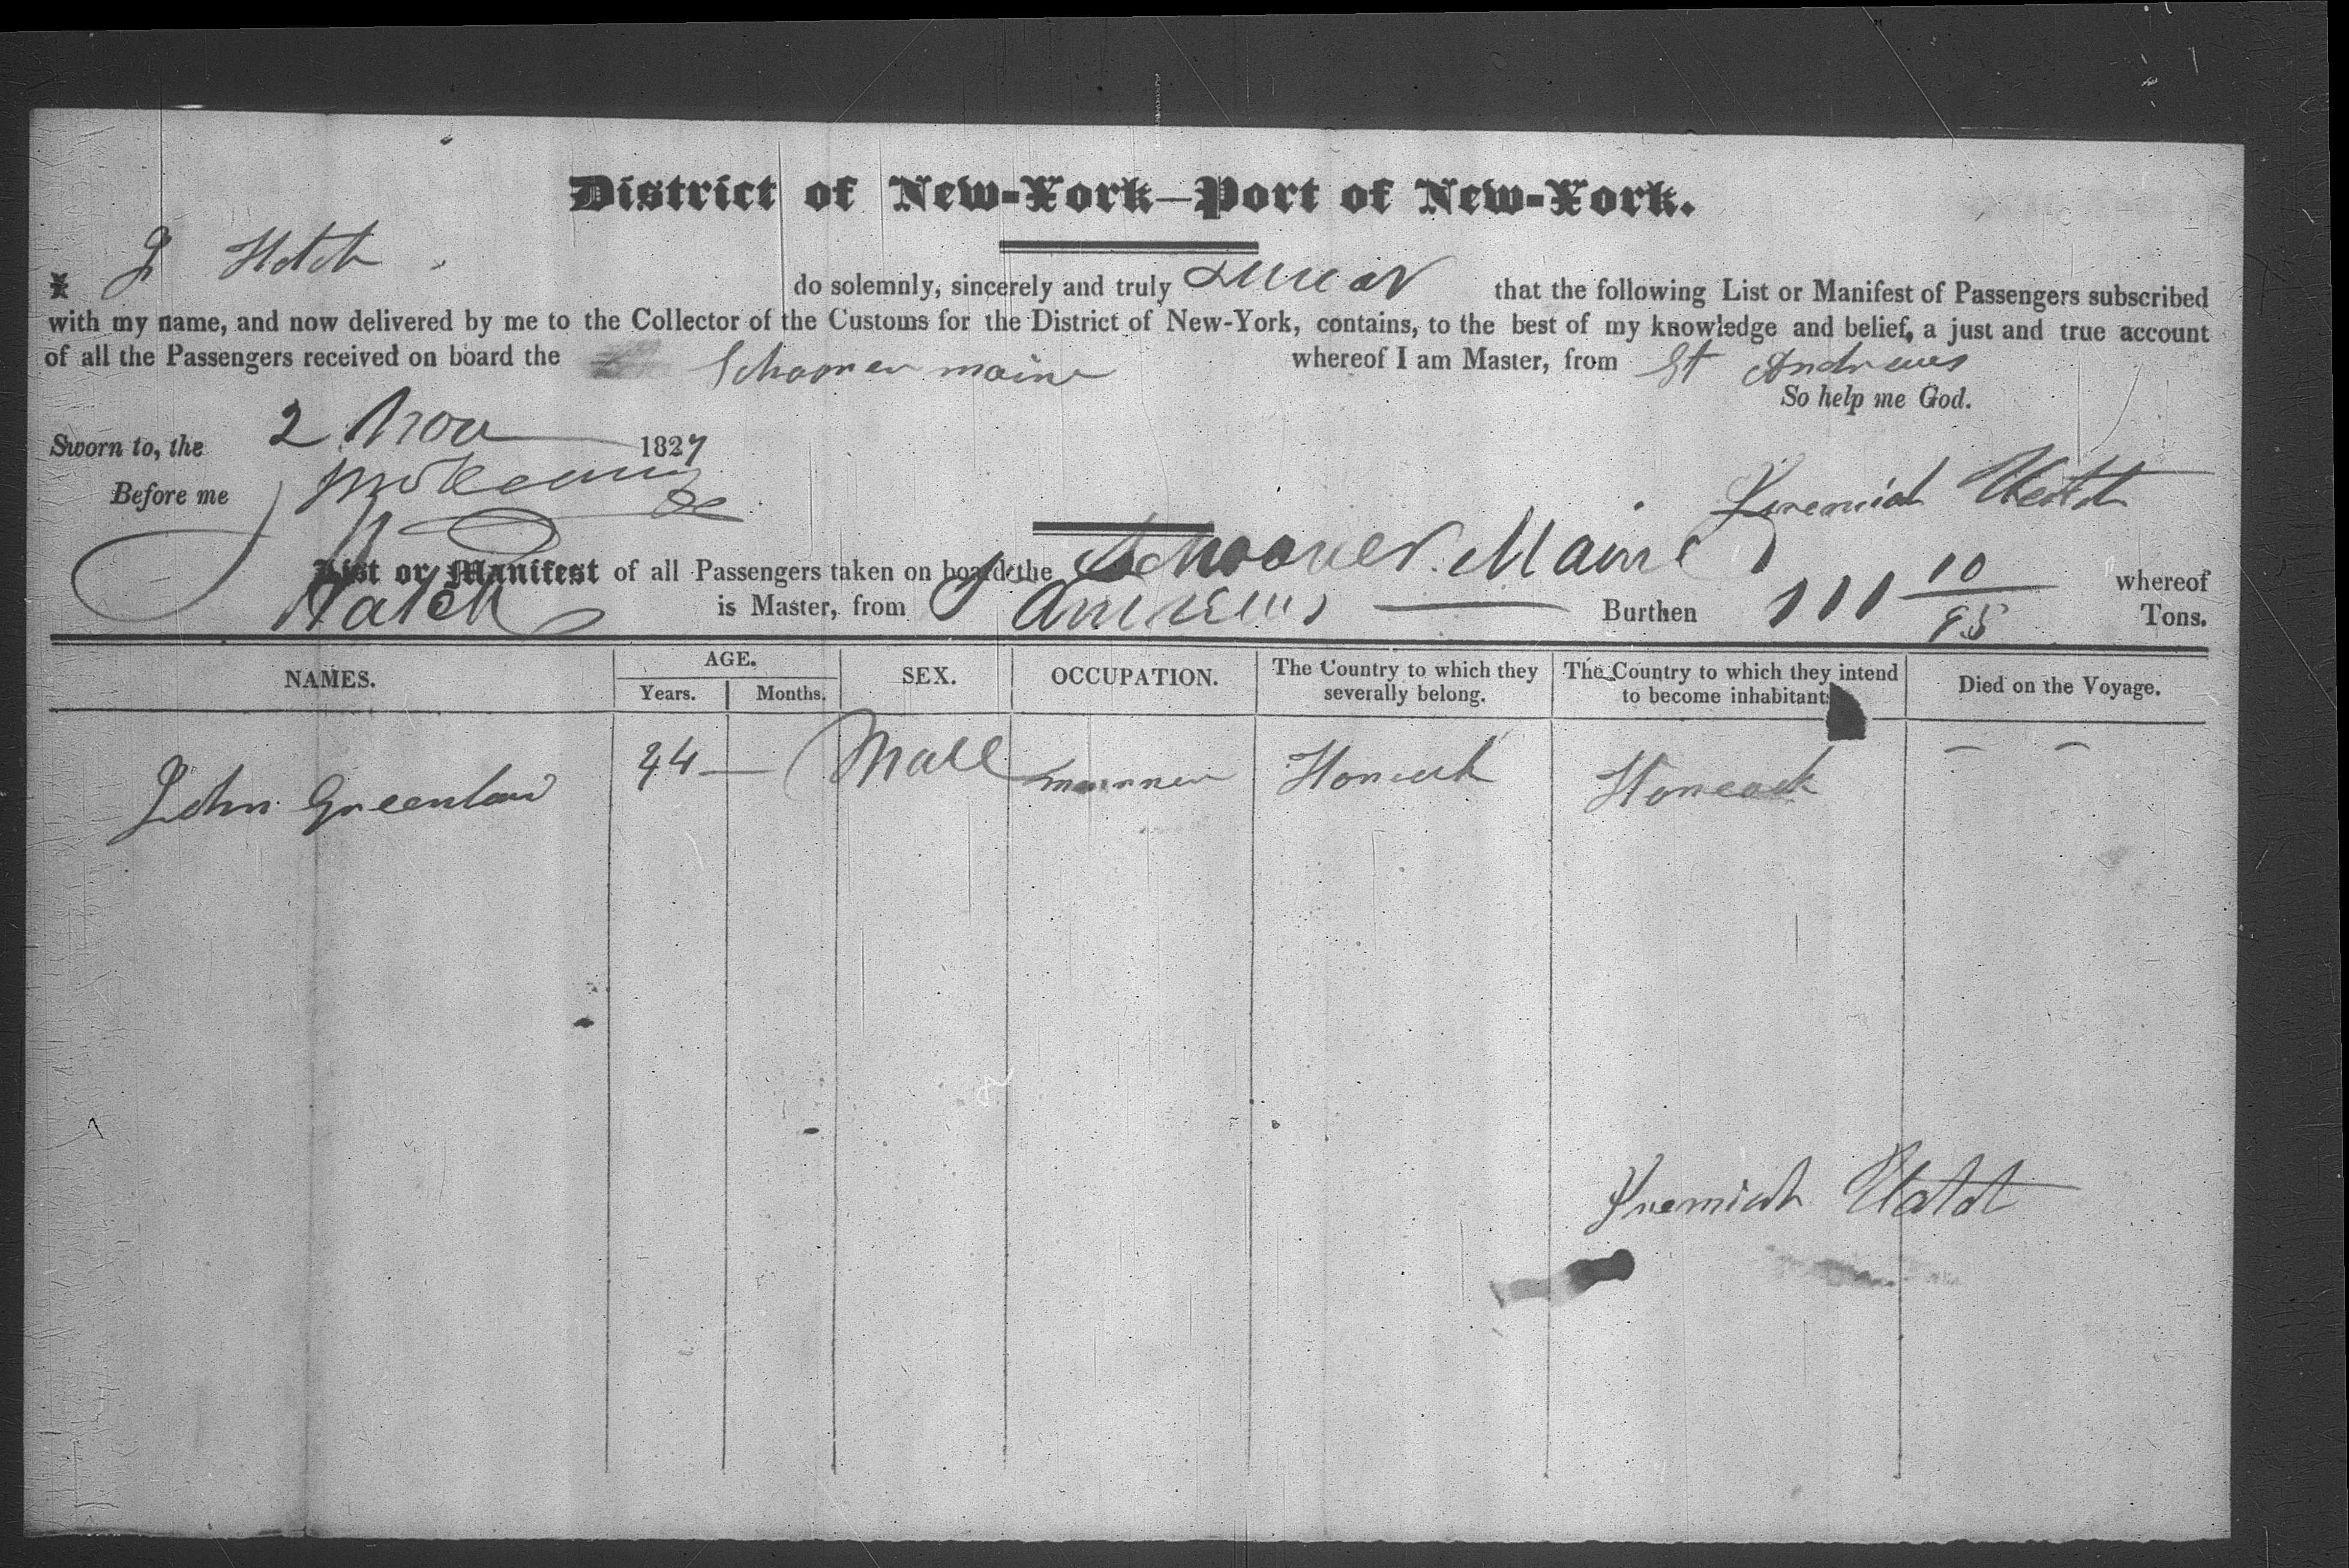 District of New-York—Port of New-York.
I J Hatch do solemnly, sincerely and truly swear that the following List or Manifest of Passengers subscribed
with my name, and now delivered by me to the Collector of the Customs for the District of New-York, contains, to the best of my knowledge and belief, a just and true account
of all the Passengers received on board the Schooner maine whereof I am Master, from St Andrews
So help me God.
Sworn to, the 2 Nov 1827
Before me
Jeremiah Hatch
List or Manifest of all Passengers taken on board the Schooner Maine whereof
Hatch is Master, from St Andrews — Burthen 111 10/95 Tons.
NAMES. AGE. SEX. OCCUPATION. The Country to which they severally belong. The Country to which they intend to become inhabitants Died on the Voyage.
Years. Months.
John Greenlaw 44 — Male mariner Honcock Honcock — —
Jeremiah Hatch